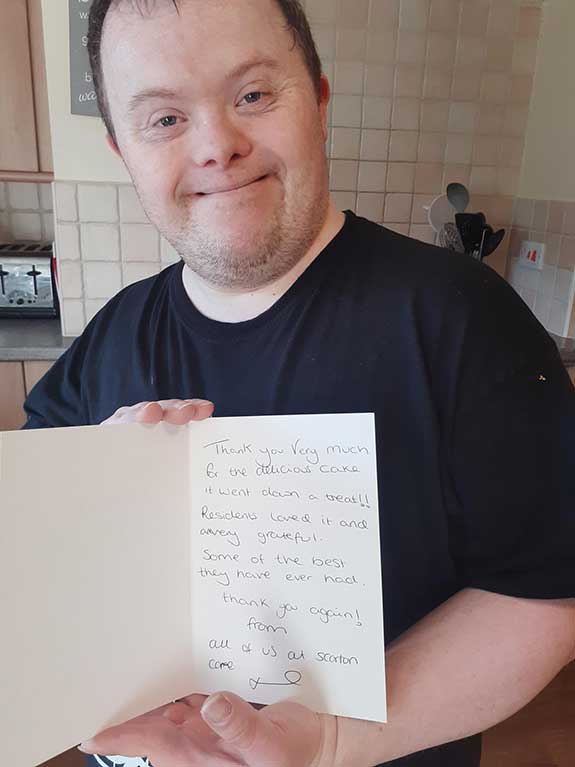 Thank you Very much
for the delicious cake
it went down a treat!!
Residents loved it and
are very grateful.
Some of the best
they have ever had.
thank you again!
from
all of us at scorton
care